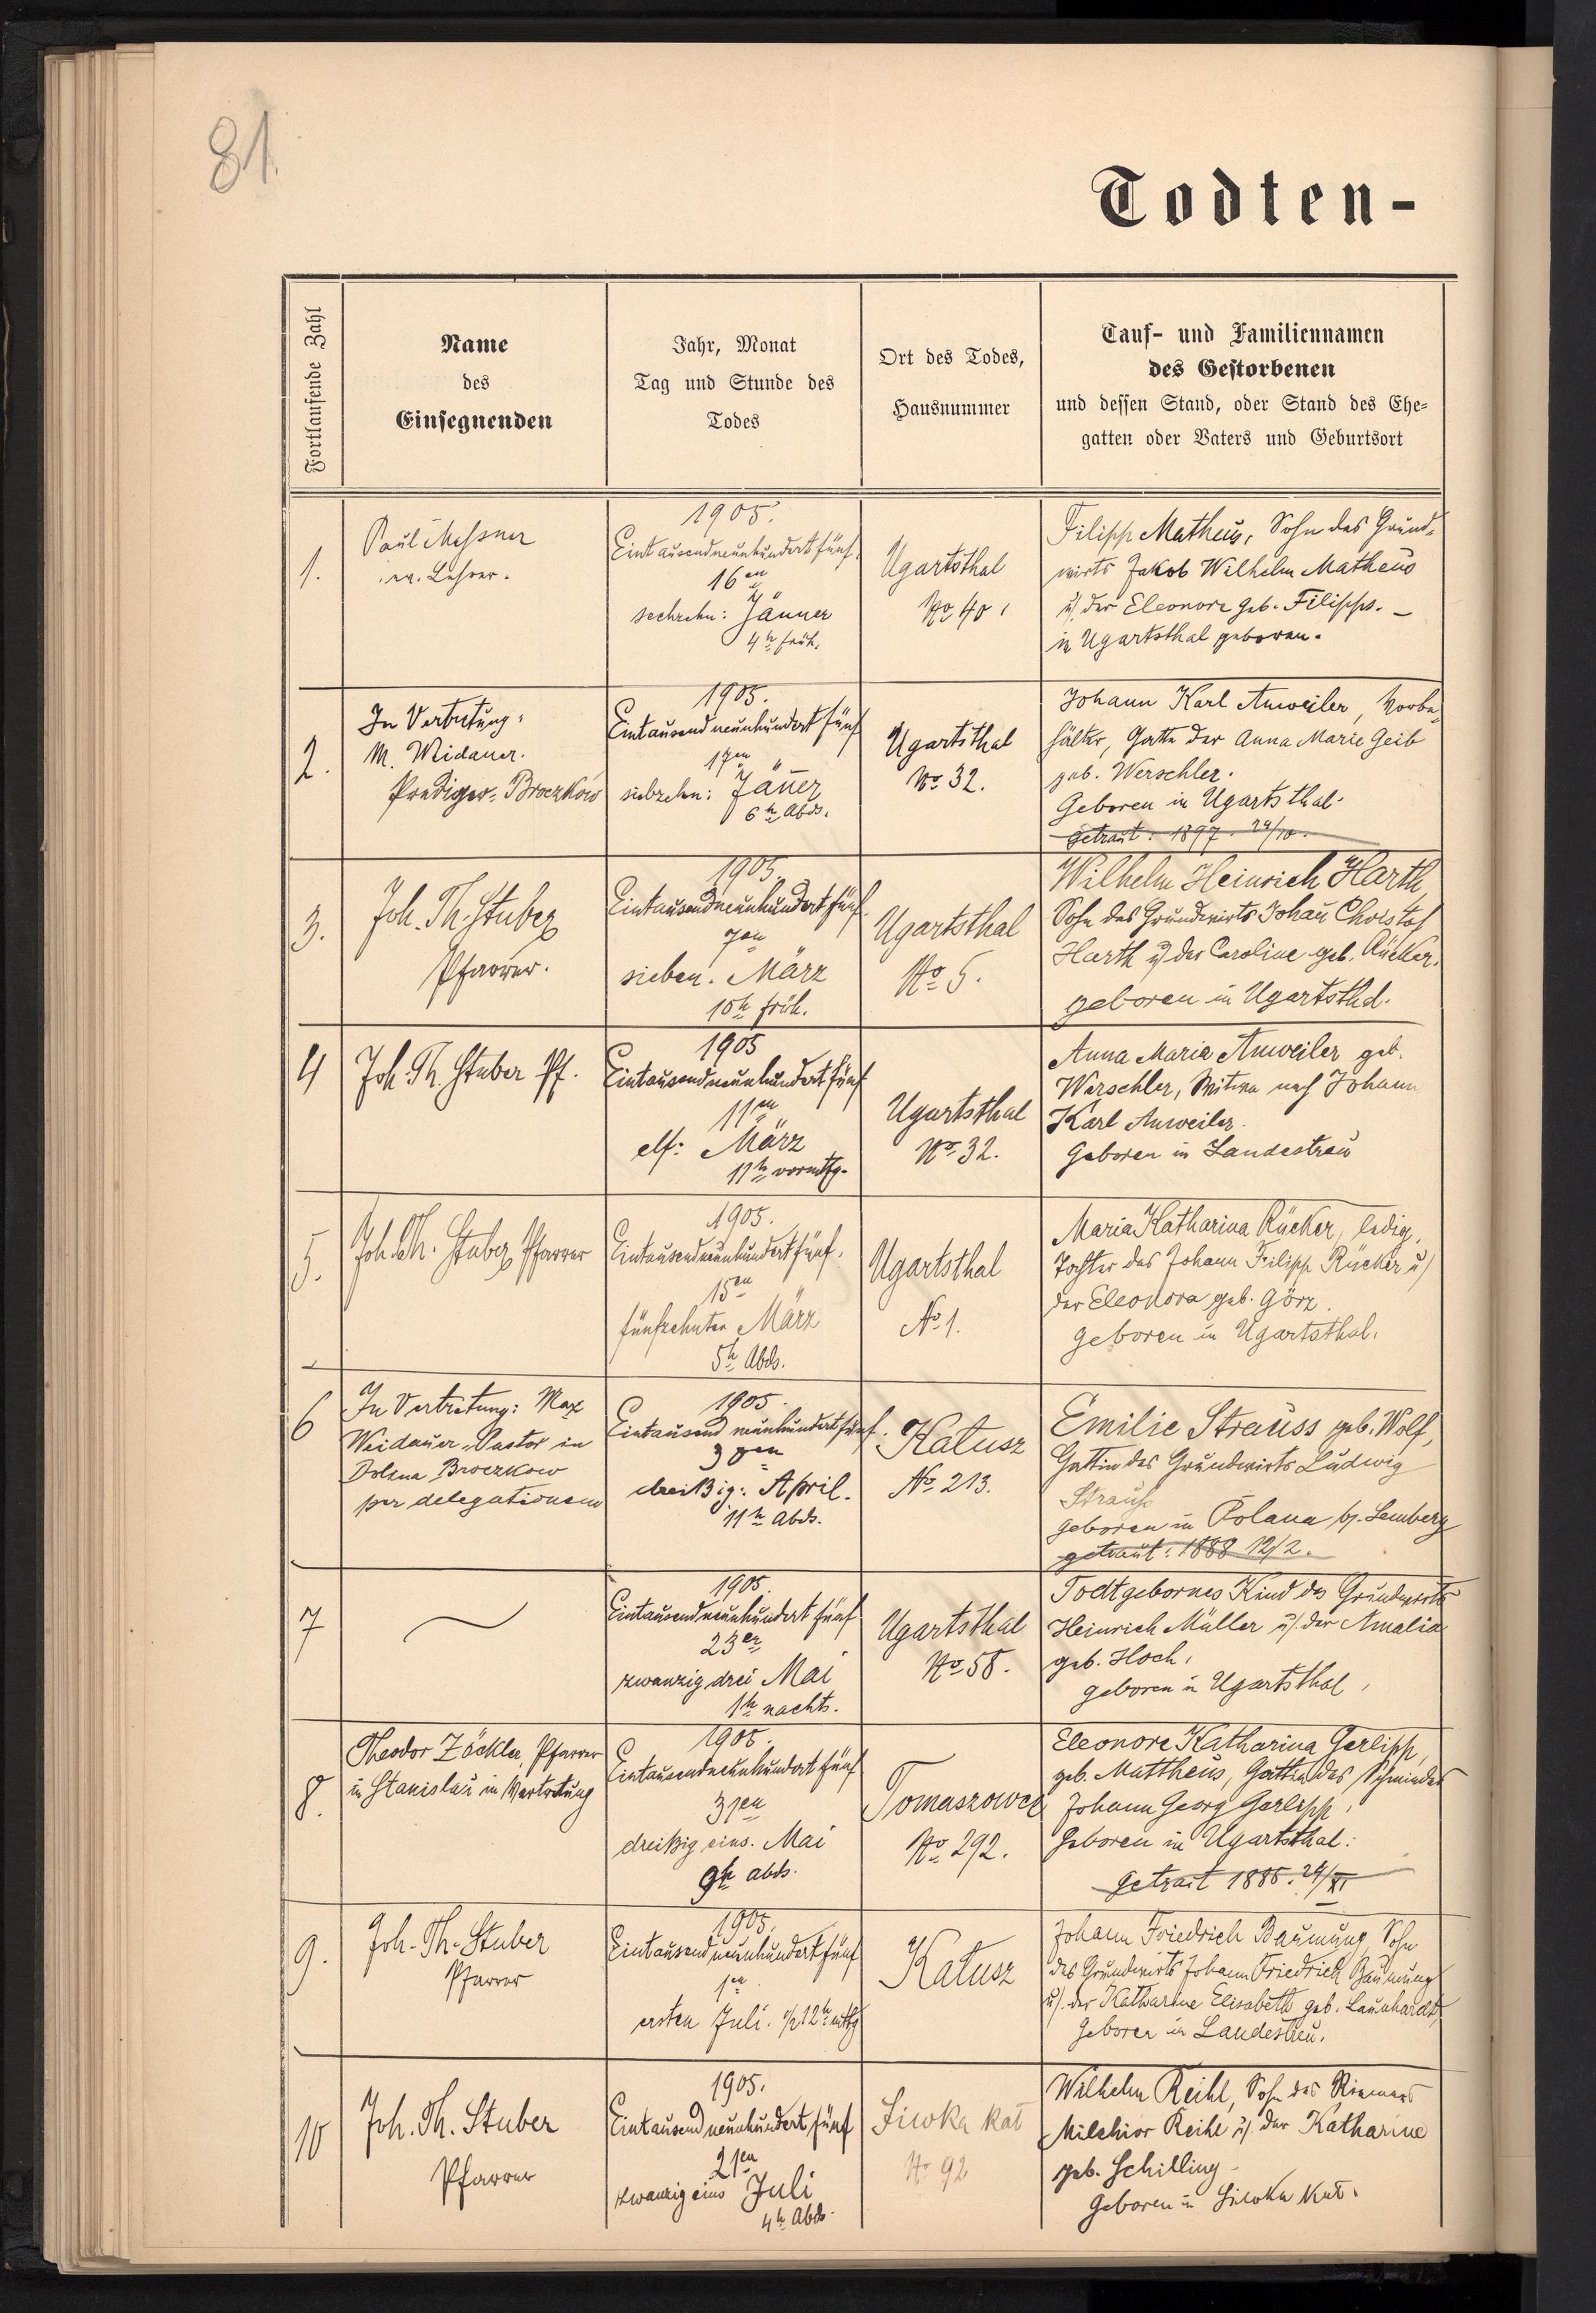 81.
Todten-
Fortlaufende Zahl
Name
des
Einsegnenden
Jahr, Monat
Tag und Stunde des
Todes
Ort des Todes,
Hausnummer
Tauf- und Familiennamen
des Gestorbenen
und dessen Stand, oder Stand des Ehe-
gatten oder Vaters und Geburtsort
1.
Paul Messner
ev. Lehrer.
1905.
Eintausendneunhundertfünf.
16en
sechzehn: Jänner
4h früh.
Ugartsthal
No 40.
Filipp Matheus, Sohn des Grund-
wirts Jakob Wilhelm Matheus
u/ der Eleonore geb. Filipps. –
in Ugartsthal geboren.
2.
In Vertretung:
M. Weidauer.
Prediger-Broczkow
1905.
Eintausend neunhundert fünf
17en
siebzehn: Jäñer
6h Abds.
Ugartsthal
No 32.
Johann Karl Anweiler, Vorbe-
hälter, Gatte der Anna Marie Geib
geb. Werschler.
Geboren in Ugartsthal.
getraut: 1897. 24/10.
3.
Joh. Th. Stuber
Pfarrer.
1905.
Eintausendneunhundertfünf.
7en
sieben. März
10h früh.
Ugartsthal
No 5.
Wilhelm Heinrich Harth,
Sohn des Grundwirts Johañ Christof
Harth u/ der Caroline geb. Rücker.
geboren in Ugartsthal.
4
Joh. Th. Stuber Pf.
1905
Eintausendneunhundertfünf
11en
elf: März
11h vormttg.
Ugartsthal
No 32.
Anna Maria Anweiler geb.
Werschler, Witwe nach Johann
Karl Anweiler.
Geboren in Landestreu
5.
Joh. Th. Stuber Pfarrer
1905.
Eintausendneunhundertfünf.
15en
fünfzehnter März
5h Abds.
Ugartsthal
No 1.
Maria Katharina Rücker, ledig,
Tochter des Johann Filipp Rücker u/
der Eleonora geb. Görz.
geboren in Ugartsthal.
6
In Vertretung: Max
Weidauer, Pastor in
Dolina Broczkow
per delegationem
1905.
Eintausend neunhundertfünf.
30en
dreißig: April.
11h Abds.
Kałusz
No 213.
Emilie Strauss geb. Wolf,
Gattin des Grundwirts Ludwig
Strauß
geboren in Polana bj. Lemberg
getraut: 1888 12/2.
7
1905.
Eintausendneunhundert fünf
23en
zwanzig drei Mai
1h nachts.
Ugartsthal
No 58.
Todtgebornes Kind des Grundwirts
Heinrich Müller u/. der Amalia
geb. Hoch,
geboren in Ugartsthal,
8.
Theodor Zöckler, Pfarrer
in Stanislau in Vertretung
1905.
Eintausendneunhundert fünf
31en
dreißig eins. Mai
9h abds.
Tomaszowce
No 292.
Eleonore Katharina Gerlipp,
geb. Mattheus, Gattin des Schmiedes
Johann Georg Gerlipp,
Geboren in Ugartsthal.
Getraut 1885. 24/XI
9.
Joh. Th. Stuber
Pfarrer
1905.
Eintausend neunhundertfünf
1en
ersten Juli. 1/2 12h mttg
Kałusz
Johann Friedrich Baumung, Sohn
des Grundwirts Johann Friedrich Baumung
u/. der Katharine Elisabeth geb. Launhardt,
Geboren in Landestreu.
10
Joh. Th. Stuber
Pfarrer
1905.
Eintausend neunhundert fünf
21en
zwanzig eins Juli
4h Abds.
Siwka kał
No 92
Wilhelm Reihl, Sohn des Riemers
Milchior Reihl u/. der Katharine
geb. Schilling –
Geboren in Siwka Kał.